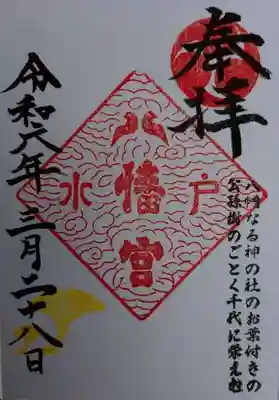 奉拝
八幡なる神の社のお葉付きの
公孫樹のごとく千代に栄えむ
八幡宮
水戸
令和六年三月二十八日